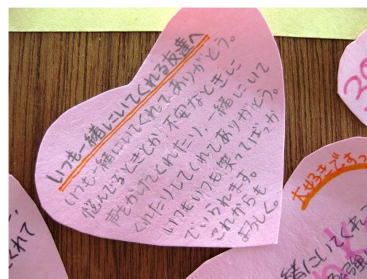 いつも一緒にいてくれる友達へ
いつも一緒にいてくれてありがとう。
悩んでるときとか不安なときに
声をかけてくれたり、一緒にいて
くれたりしてくれてありがとう。
いつもいつも笑ってばっか
でいられます。
これからも
よろしく。
大好きですっ
緒にいてくれ